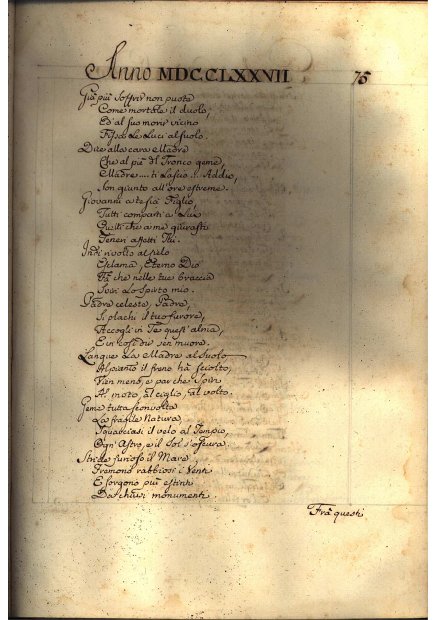 Anno MDCCLXXVII. 75
Già più soffrir non puote
Come mortale il duolo,
Ed al suo morir vicino
Fissò le Luci al suolo.
Dice alla cara Madre
Che al piè dl Tronco geme,
Madre.... ti lascio... Addio,
Son giunto all'ore estreme.
Giovanni a te sia Figlio,
Tutti comparti a Lui
Quelli che a me giurasti
Teneri affetti Tui.
Indi rivolto al Cielo
Esclama, Eterno Dio
Fà che nelle tue braccia
Spiri lo Spirto mio.
Padre celeste, Padre,
Si plachi il tuo furore,
Accogli in Te quest'alma,
E in così dir sen muore.
Langue La Madre al suolo
Al pianto il freno hà sciolto,
Vien meno, e par che Spiri
Al moto, al ciglio, al volto.
Geme tutta sconvolta
La fragile Natura,
Squarciasi il velo al Tempio,
Ogn'Astro, e il Sol s'oscura.
Stride furioso il Mare
Fremono rabbiosi i Venti
E sorgono più estinti
Da' chiusi monumenti.
Frà questi